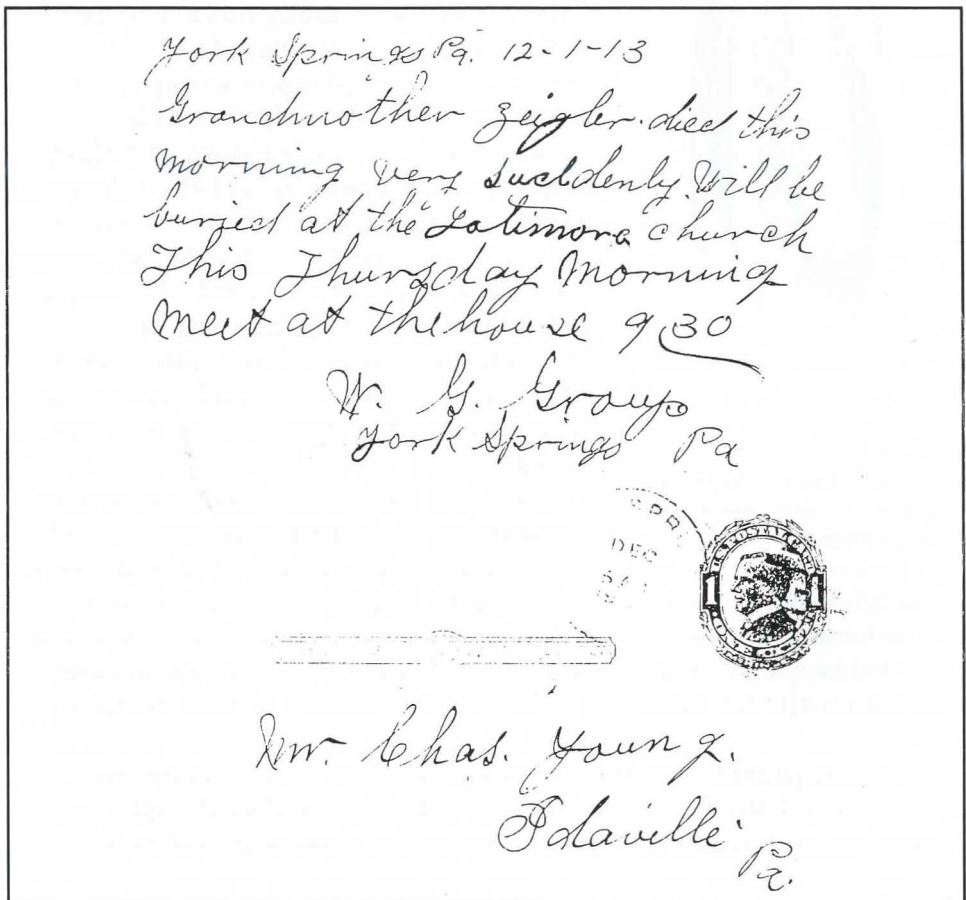 York Springs Pa. 12-1-13
Grandmother Zeigler died this
morning very suddenly. Will be
buried at the Latimore church
This Thursday Morning
Meet at the house 9 30
W. G. Group
York Springs Pa
DEC
1
1
Mr. Chas. Young.
Idaville
Pa.